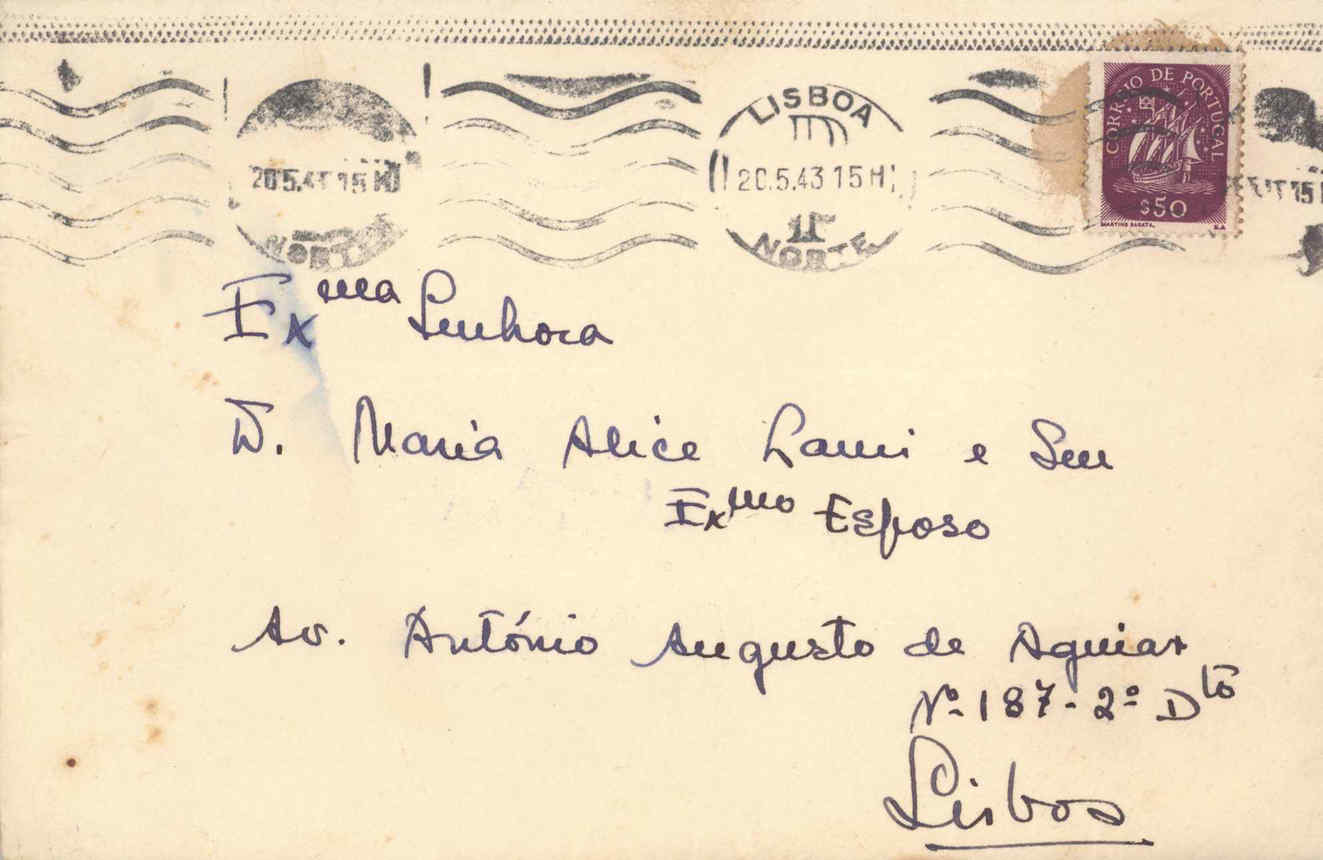 LISBOA
20.5.43 15 H
NORTE
20.5.43 15 H
NORTE
15
CORREIO DE PORTUGAL
$50
MARTINS BARATA.
Exma Senhora
D. Maria Alice Lami e Seu
Exmo Esposo
Av. António Augusto de Aguiar
Nº 187 - 2º Dto
Lisboa